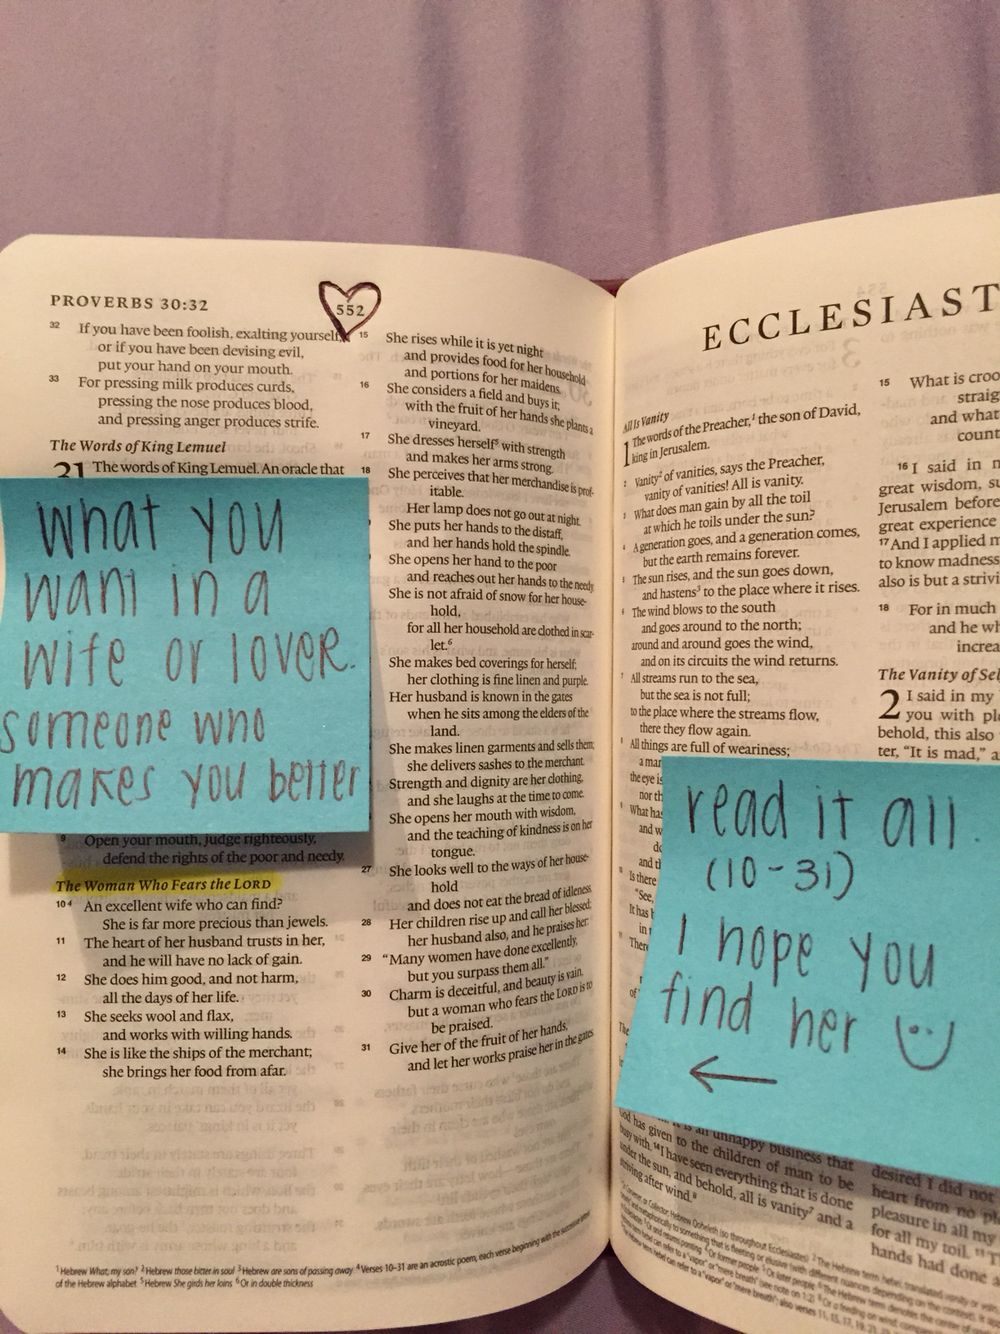 PROVERBS 30:32
552
32 If you have been foolish, exalting yourself,
or if you have been devising evil,
put your hand on your mouth.
33 For pressing milk produces curds,
pressing the nose produces blood,
and pressing anger produces strife.
The Words of King Lemuel
31 The words of King Lemuel. An oracle that
what you
want in a
wife or lover.
someone who
makes you better
9 Open your mouth, judge righteously,
defend the rights of the poor and needy.
The Woman Who Fears the LORD
10 4 An excellent wife who can find?
She is far more precious than jewels.
11 The heart of her husband trusts in her,
and he will have no lack of gain.
12 She does him good, and not harm,
all the days of her life.
13 She seeks wool and flax,
and works with willing hands.
14 She is like the ships of the merchant;
she brings her food from afar.
15 She rises while it is yet night
and provides food for her household
and portions for her maidens.
16 She considers a field and buys it;
with the fruit of her hands she plants a
vineyard.
17 She dresses herself5 with strength
and makes her arms strong.
18 She perceives that her merchandise is prof-
itable.
Her lamp does not go out at night.
She puts her hands to the distaff,
and her hands hold the spindle.
She opens her hand to the poor
and reaches out her hands to the needy.
She is not afraid of snow for her house-
hold,
for all her household are clothed in scar-
let.6
She makes bed coverings for herself;
her clothing is fine linen and purple.
Her husband is known in the gates
when he sits among the elders of the
land.
She makes linen garments and sells them;
she delivers sashes to the merchant.
Strength and dignity are her clothing,
and she laughs at the time to come.
She opens her mouth with wisdom,
and the teaching of kindness is on her
tongue.
27 She looks well to the ways of her house-
hold
and does not eat the bread of idleness.
28 Her children rise up and call her blessed;
her husband also, and he praises her:
29 “Many women have done excellently,
but you surpass them all.”
30 Charm is deceitful, and beauty is vain,
but a woman who fears the LORD is to
be praised.
31 Give her of the fruit of her hands,
and let her works praise her in the gates.
1 Hebrew What, my son? 2 Hebrew those bitter in soul 3 Hebrew are sons of passing away 4 Verses 10–31 are an acrostic poem, each verse beginning with the successive letters
of the Hebrew alphabet 5 Hebrew She girds her loins 6 Or in double thickness
ECCLESIAST
All Is Vanity
1 The words of the Preacher,1 the son of David,
king in Jerusalem.
2 Vanity2 of vanities, says the Preacher,
vanity of vanities! All is vanity.
3 What does man gain by all the toil
at which he toils under the sun?
4 A generation goes, and a generation comes,
but the earth remains forever.
5 The sun rises, and the sun goes down,
and hastens3 to the place where it rises.
6 The wind blows to the south
and goes around to the north;
around and around goes the wind,
and on its circuits the wind returns.
7 All streams run to the sea,
but the sea is not full;
to the place where the streams flow,
there they flow again.
8 All things are full of weariness;
a man
the eye is
nor th
What ha
and w
Is there
"See,
It has b
in
read it all.
(10-31)
I hope you
find her
is an unhappy business that
God has given to the children of man to be
busy with. 14 I have seen everything that is done
under the sun, and behold, all is vanity7 and a
striving after wind.8
15 What is croo
straig
and what
count
16 I said in m
great wisdom, su
Jerusalem before
great experience
17 And I applied m
to know madness
also is but a strivi
18 For in much
and he wh
increa
The Vanity of Sel
2 I said in my
you with ple
behold, this also
ter, “It is mad,” a
desired I did not
heart from no pl
pleasure in all my
for all my toil. 11 T
hands had done a